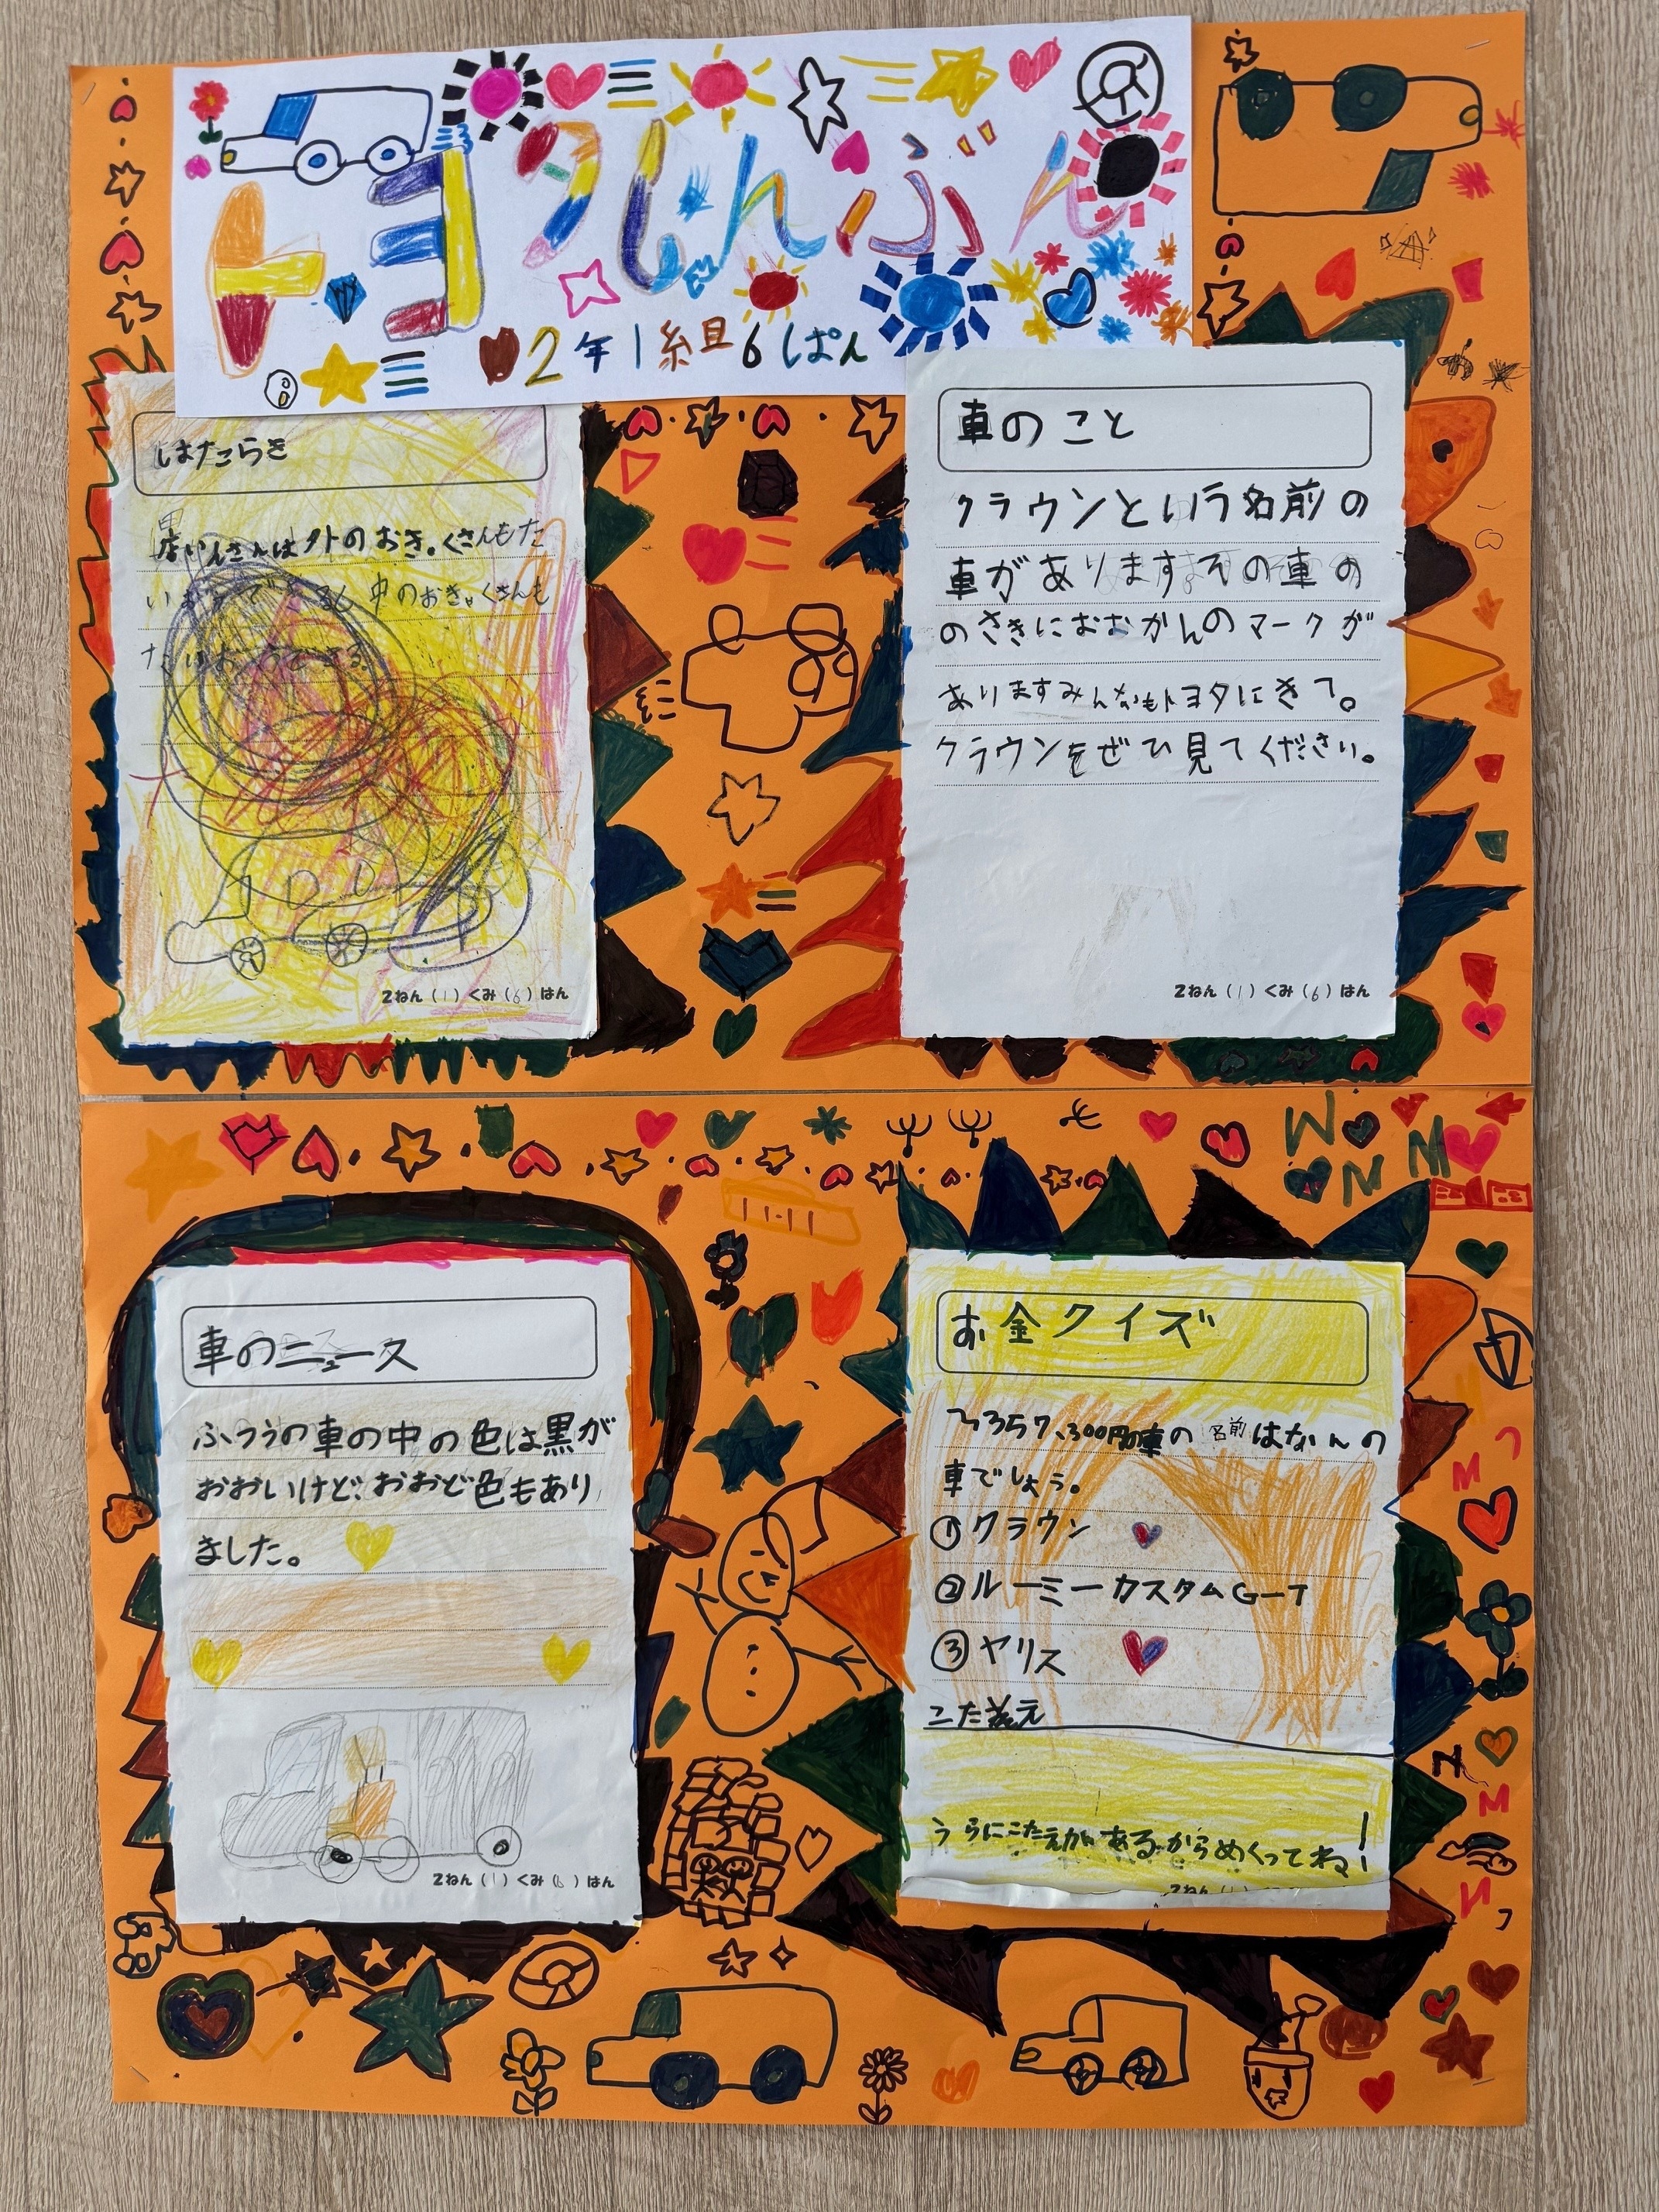 トヨタしんぶん
2年1組6ぱん
はたらき
店いんさんは外のおきゃくさんもた
いおうできるし中のおきゃくさんも
たいおうできる。
2ねん(1)くみ(6)はん
車のこと
クラウンという名前の
車がありますその車の
のさきにおおかんのマークが
ありますみんなもトヨタにきて。
クラウンをぜひ見てください。
2ねん(1)くみ(6)はん
車のニュース
ふつうの車の中の色は黒が
おおいけど、おおど色もあり
ました。
2ねん(1)くみ(6)はん
お金クイズ
3357,300円の車の名前はなんの
車でしょう。
①クラウン
②ルーミーカスタムG-T
③ヤリス
こたえ
うらにこたえがあるからめくってね!